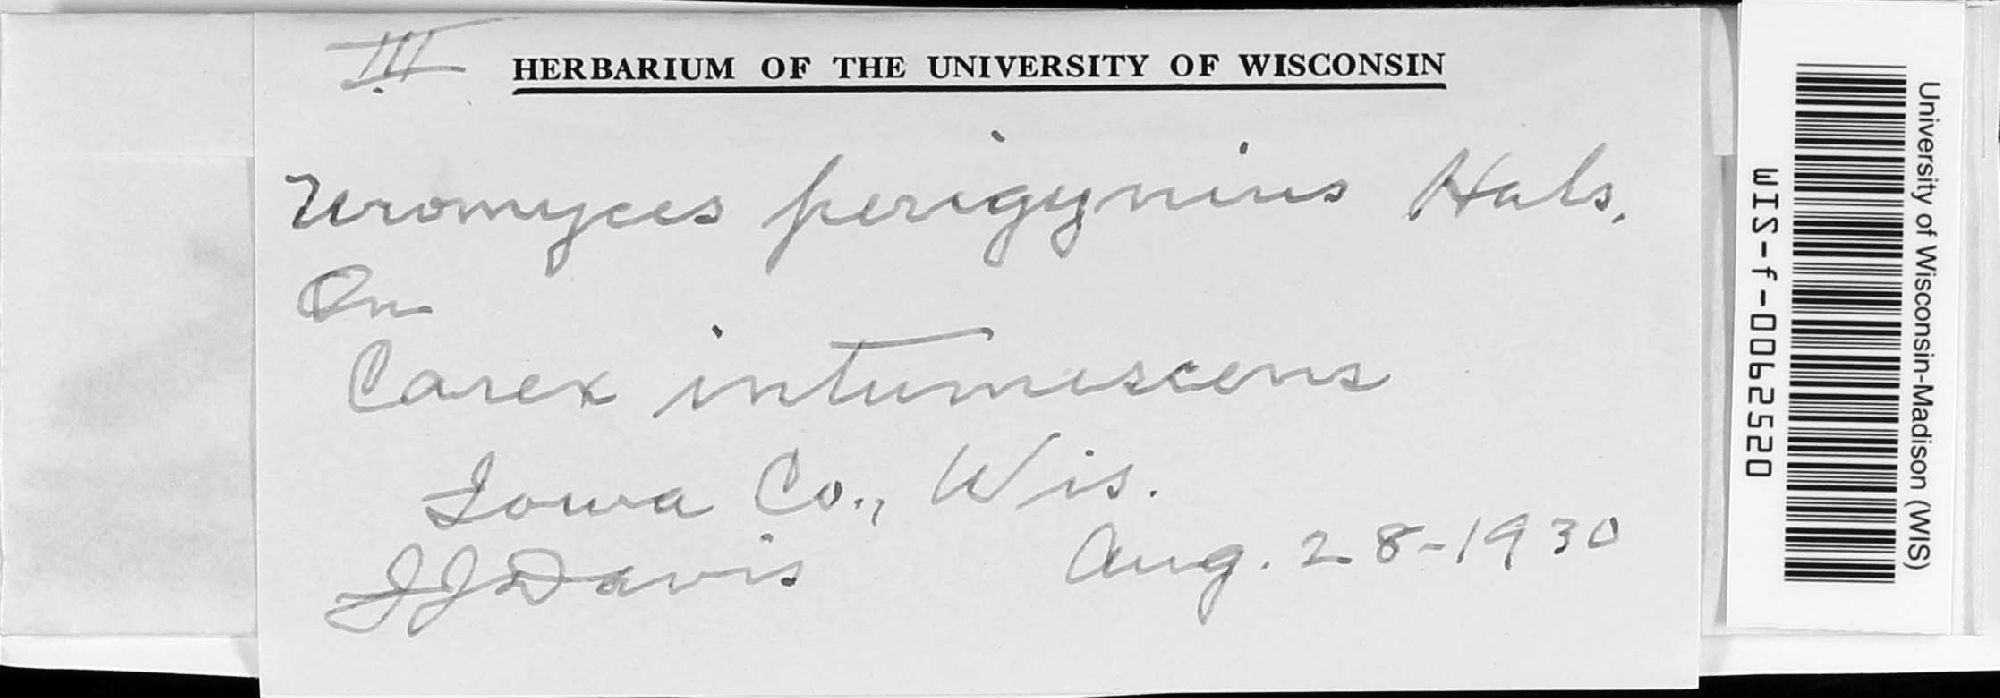 III
HERBARIUM OF THE UNIVERSITY OF WISCONSIN
Uromyces perigynius Hals.
On
Carex intumescens
Iowa Co., Wis.
JJDavis Aug. 28-1930
University of Wisconsin-Madison (WIS)
WIS-f-0062520